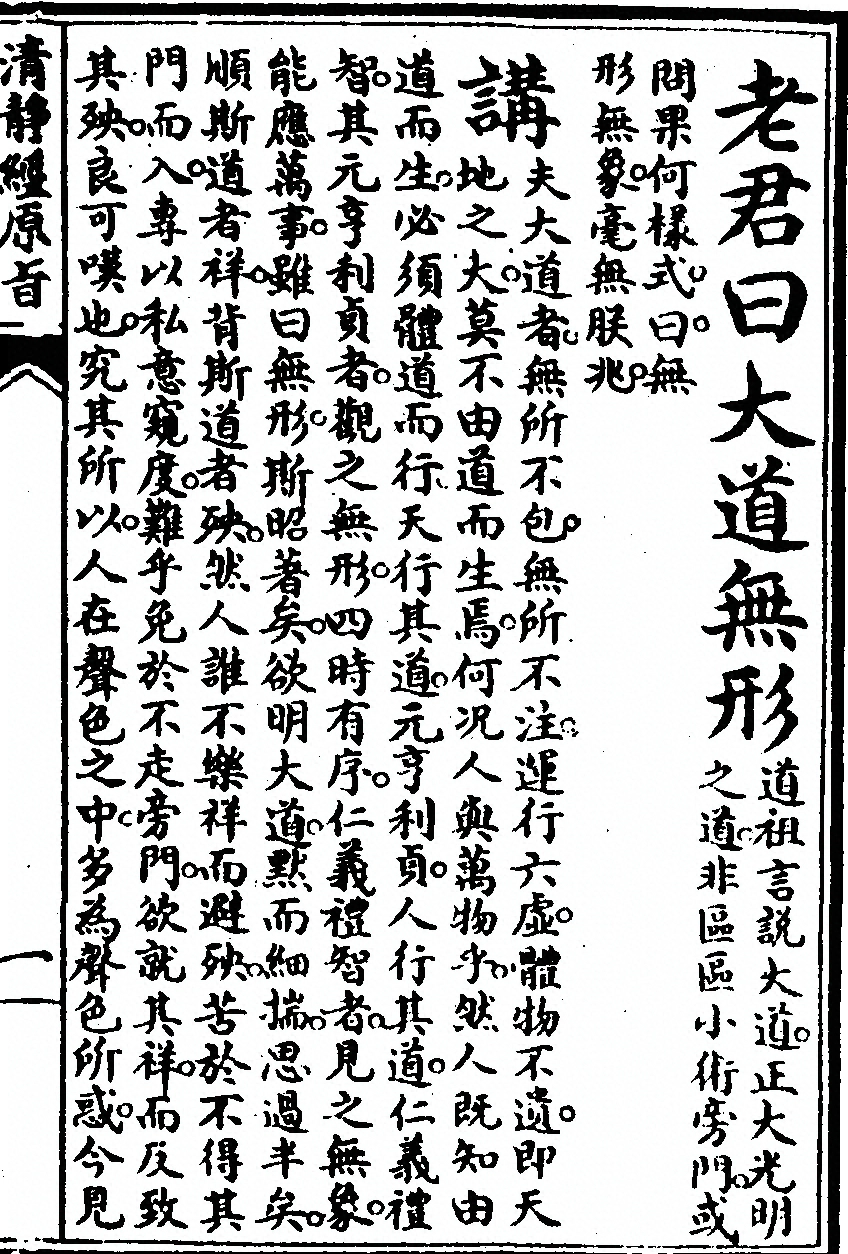 老君曰大道無形
道祖言說大道正大光明
之道非區區小術旁門或
問果何樣式曰無
形無象毫無朕兆
講夫大道者無所不包無所不注運行六虛體物不遺即天
地之大莫不由道而生焉何况人與萬物乎然人既知由
道而生必須體道而行天行其道元亨利貞人行其道仁義禮
智其元亨利貞者觀之無形四時有序仁義禮智者見之無象
能應萬事雖曰無形斯昭著矣欲明大道默而細揣思過半矣
順斯道者祥背斯道者殃然人誰不樂祥而避殃苦於不得其
門而入專以私意窺度難乎免於不走旁門欲就其祥而反致
其殃良可嘆也究其所以人在聲色之中多為聲色所惑今見
清靜經原旨
一